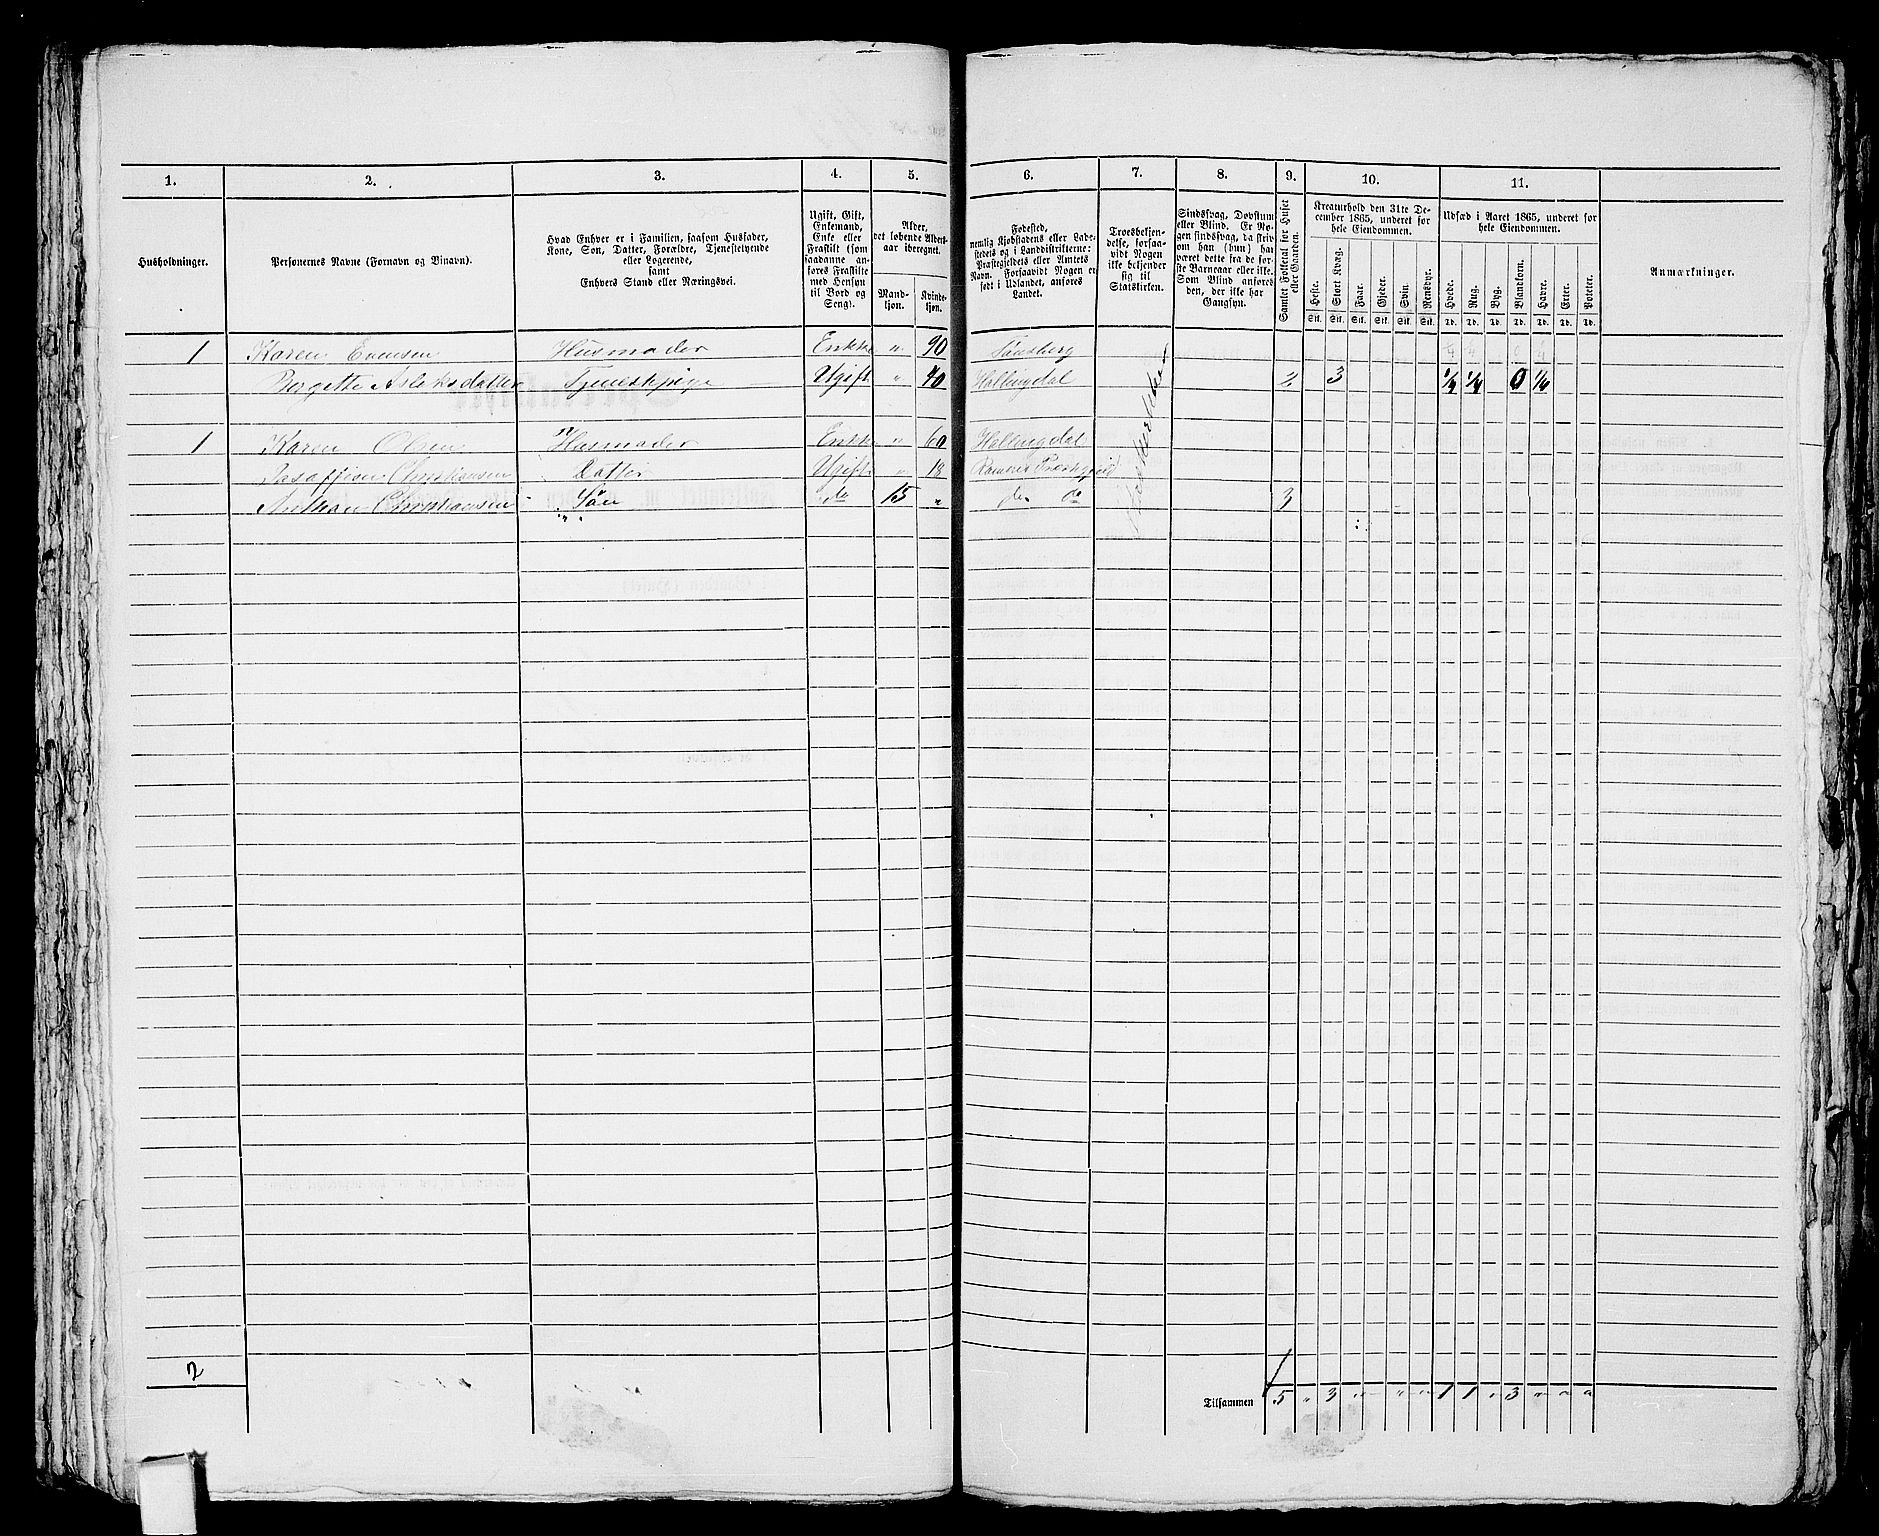 1. 2. 3. 4. 5. 6. 7. 8. 9. 10. 11.
Husholdninger.
Personernes Navne (Fornavn og Tilnavn).
Hvad Enhver er i Familien, saasom Husfader,
Kone, Søn, Datter, Forældre, Tjenestetyende
eller Logerende,
samt
Enhvers Stand eller Næringsvei.
Ugift, Gift,
Enkemand,
Enke eller
Fraskilt (som
saadanne an-
føres Fraskilte
med Hensyn
til Bord og
Seng).
Alder,
det løbende Alders-
aar iberegnet.
Mand-
kjøn.
Kvinde-
kjøn.
Fødested,
nemlig Kjøbstadens eller Lade-
stedets og i Landdistrikterne:
Præstegjeldets eller Amtets
Navn. Forsaavidt Nogen er
født i Udlandet, anføres
Landet.
Troesbekjen-
delse, forsaa-
vidt Nogen
ikke bekjender
sig til
Statskirken.
Sindssvag, Døvstum
eller Blind. Er No-
gen sindssvag, da skriv
om han (hun) har
været dette fra de før-
ste Barneaar eller ikke.
Som Blind anføres
den, der ikke har
Gangsyn.
Samlet Folketal for Huset
eller Gaarden.
Kreaturhold den 31te De-
cember 1865, underet for
hele Eiendommen.
Heste. Stort Kvæg. Faar. Gjeder. Svin. Rensdyr.
Stk. Stk. Stk. Stk. Stk. Stk.
Udsæd i Aaret 1865, underet for
hele Eiendommen.
Hvede. Rug. Byg. Blandkorn. Havre. Erter. Poteter.
Td. Td. Td. Td. Td. Td. Td.
Anmærkninger.
1 Karen Evensen Husmoder Enkke " 90 Tønsberg
Bergette Asleksdatter Tjenestepige Ugift " 40 Hallingdal 2 3 1/4 1/4 0
1 Karen Olsen Husmoder Enkke " 60 Hallingdal
Christiansen Datter Ugift " 18
Christiansen Søn do 15 " do do 3
2
Tilsammen 5 " 3 " " " 1 1 " 3 " " "